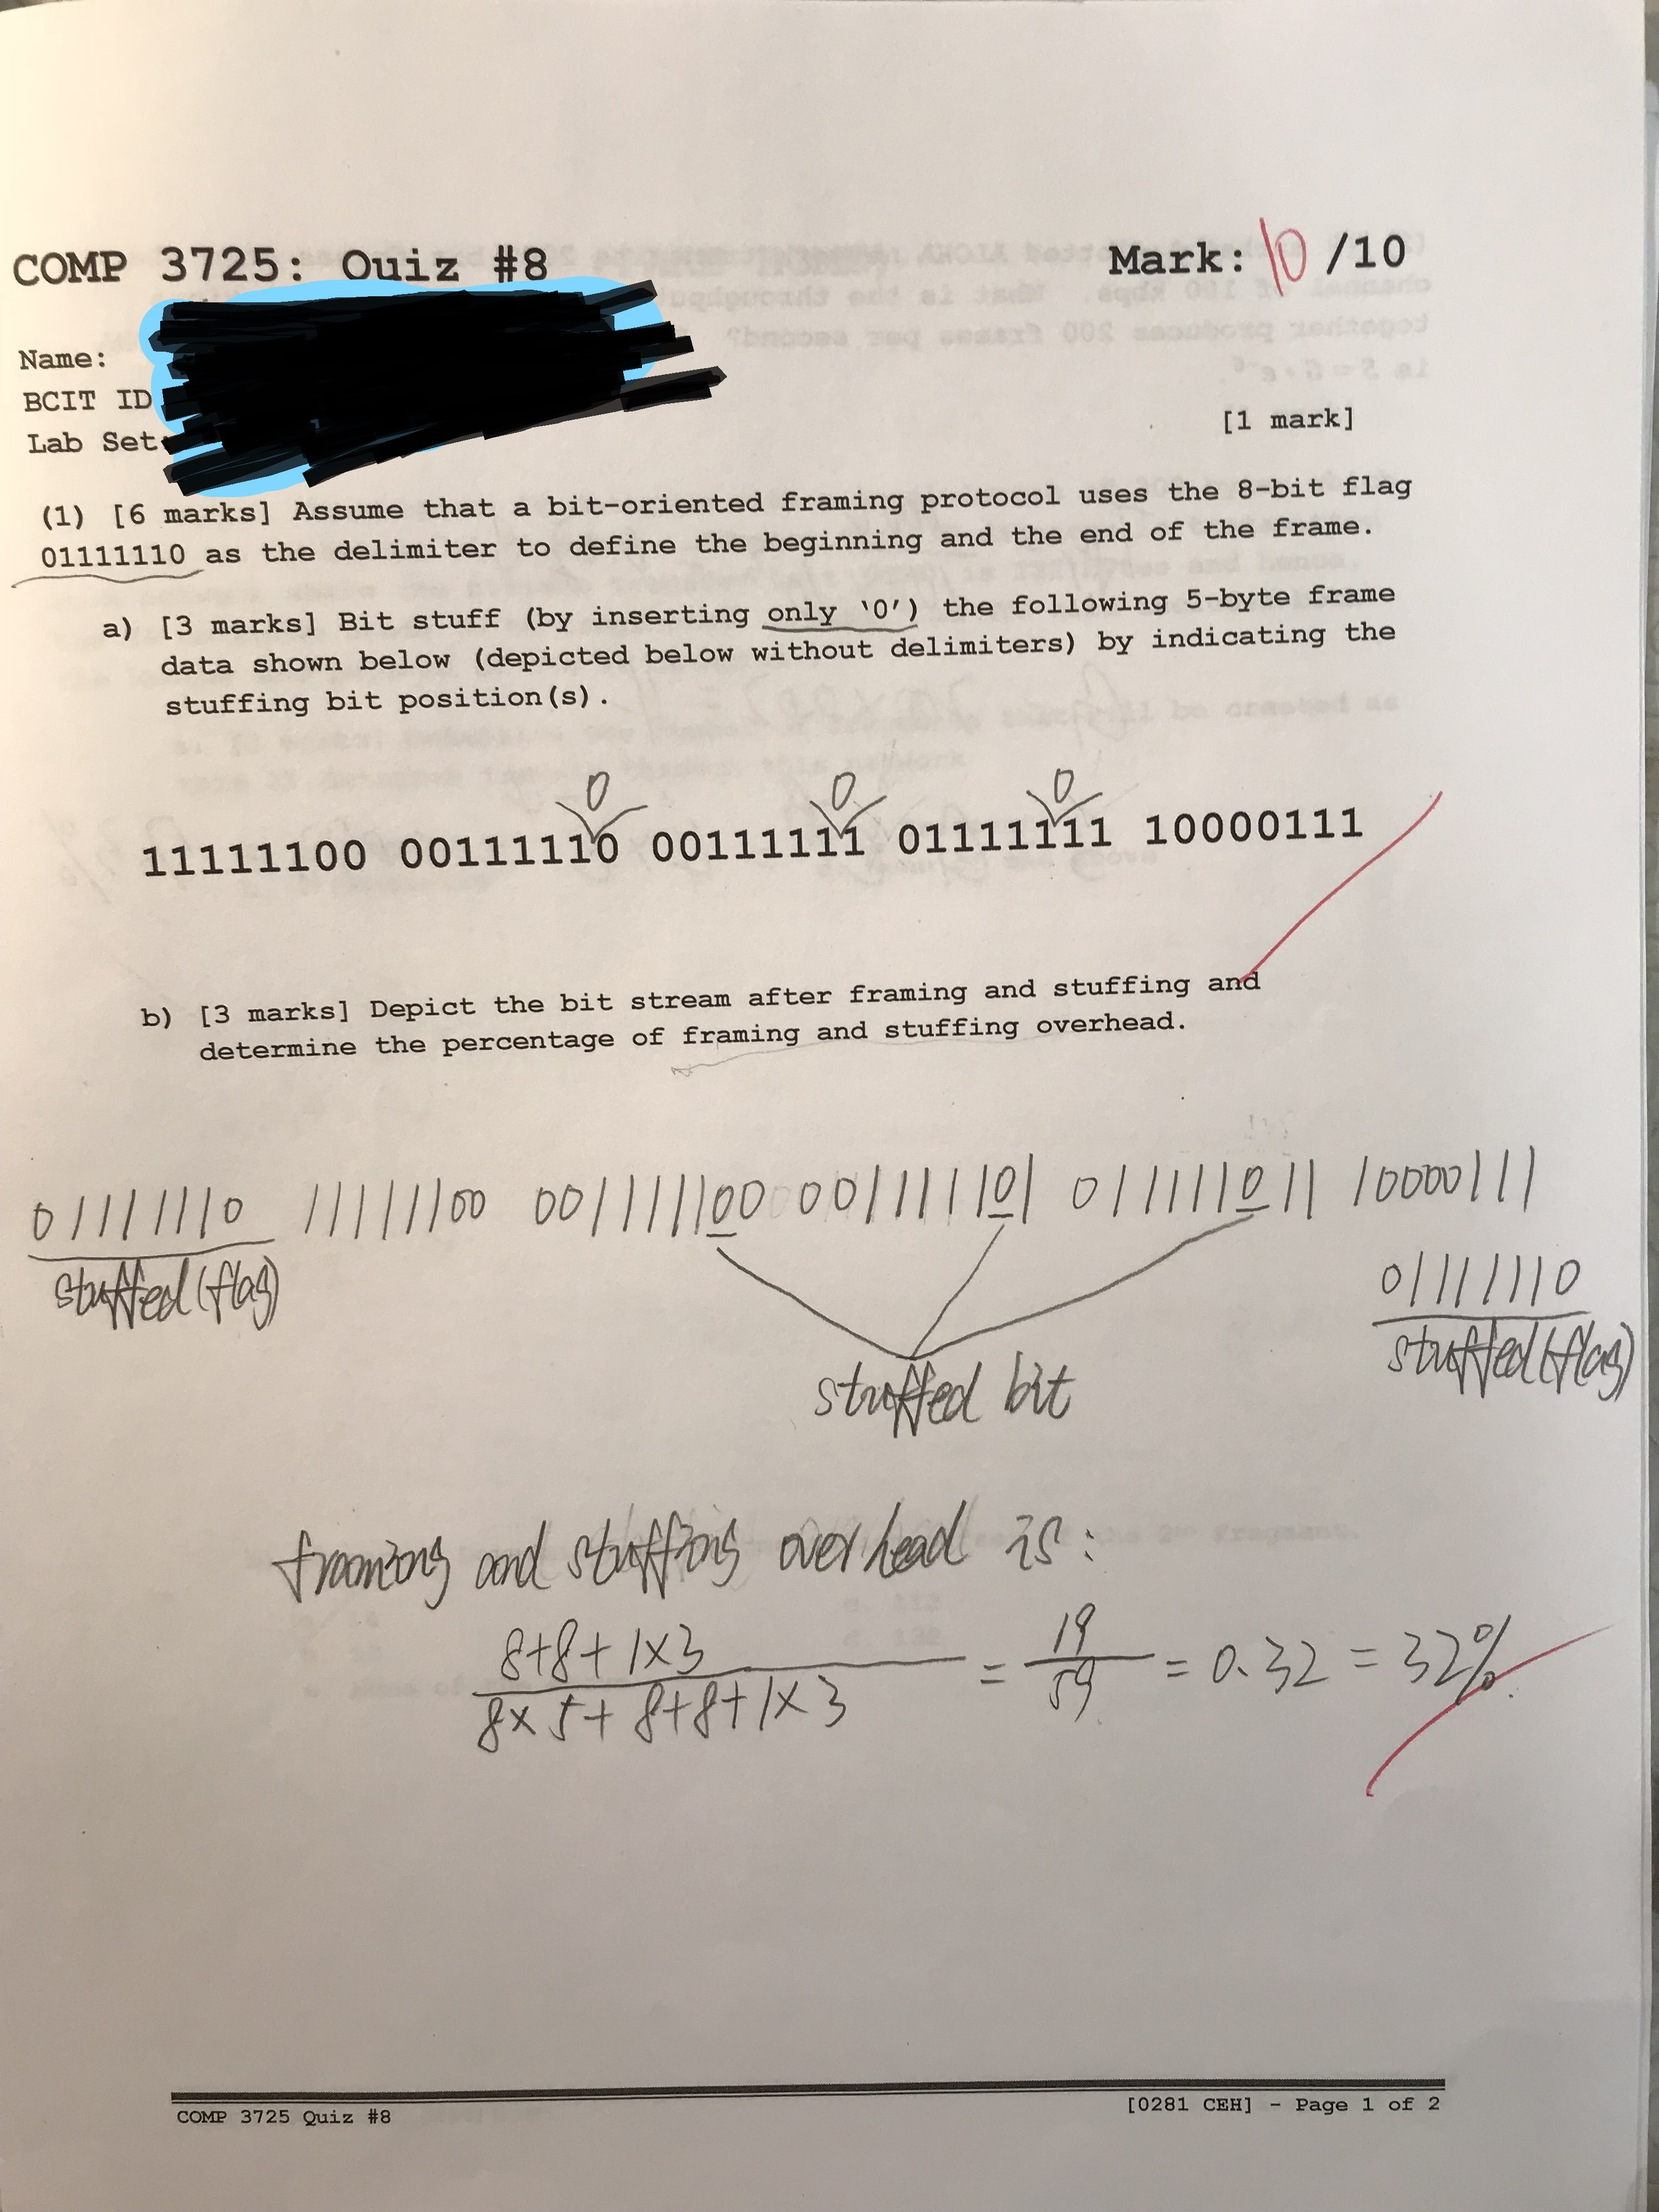 COMP 3725: Quiz #8 Mark: 10 /10
Name:
BCIT ID
Lab Set
[1 mark]
(1) [6 marks] Assume that a bit-oriented framing protocol uses the 8-bit flag
01111110 as the delimiter to define the beginning and the end of the frame.
a) [3 marks] Bit stuff (by inserting only ‘0’) the following 5-byte frame
data shown below (depicted below without delimiters) by indicating the
stuffing bit position(s).
0 0 0
11111100 00111110 00111111 01111111 10000111
b) [3 marks] Depict the bit stream after framing and stuffing and
determine the percentage of framing and stuffing overhead.
01111110 11111100 001111100 001111101 011111011 10000111
stuffed(flag)
01111110
stuffed(flag)
stuffed bit
framing and stuffing overhead is:
8+8+1×3
8×5+8+8+1×3
= 19/59 = 0.32 = 32%.
COMP 3725 Quiz #8 [0281 CEH] - Page 1 of 2